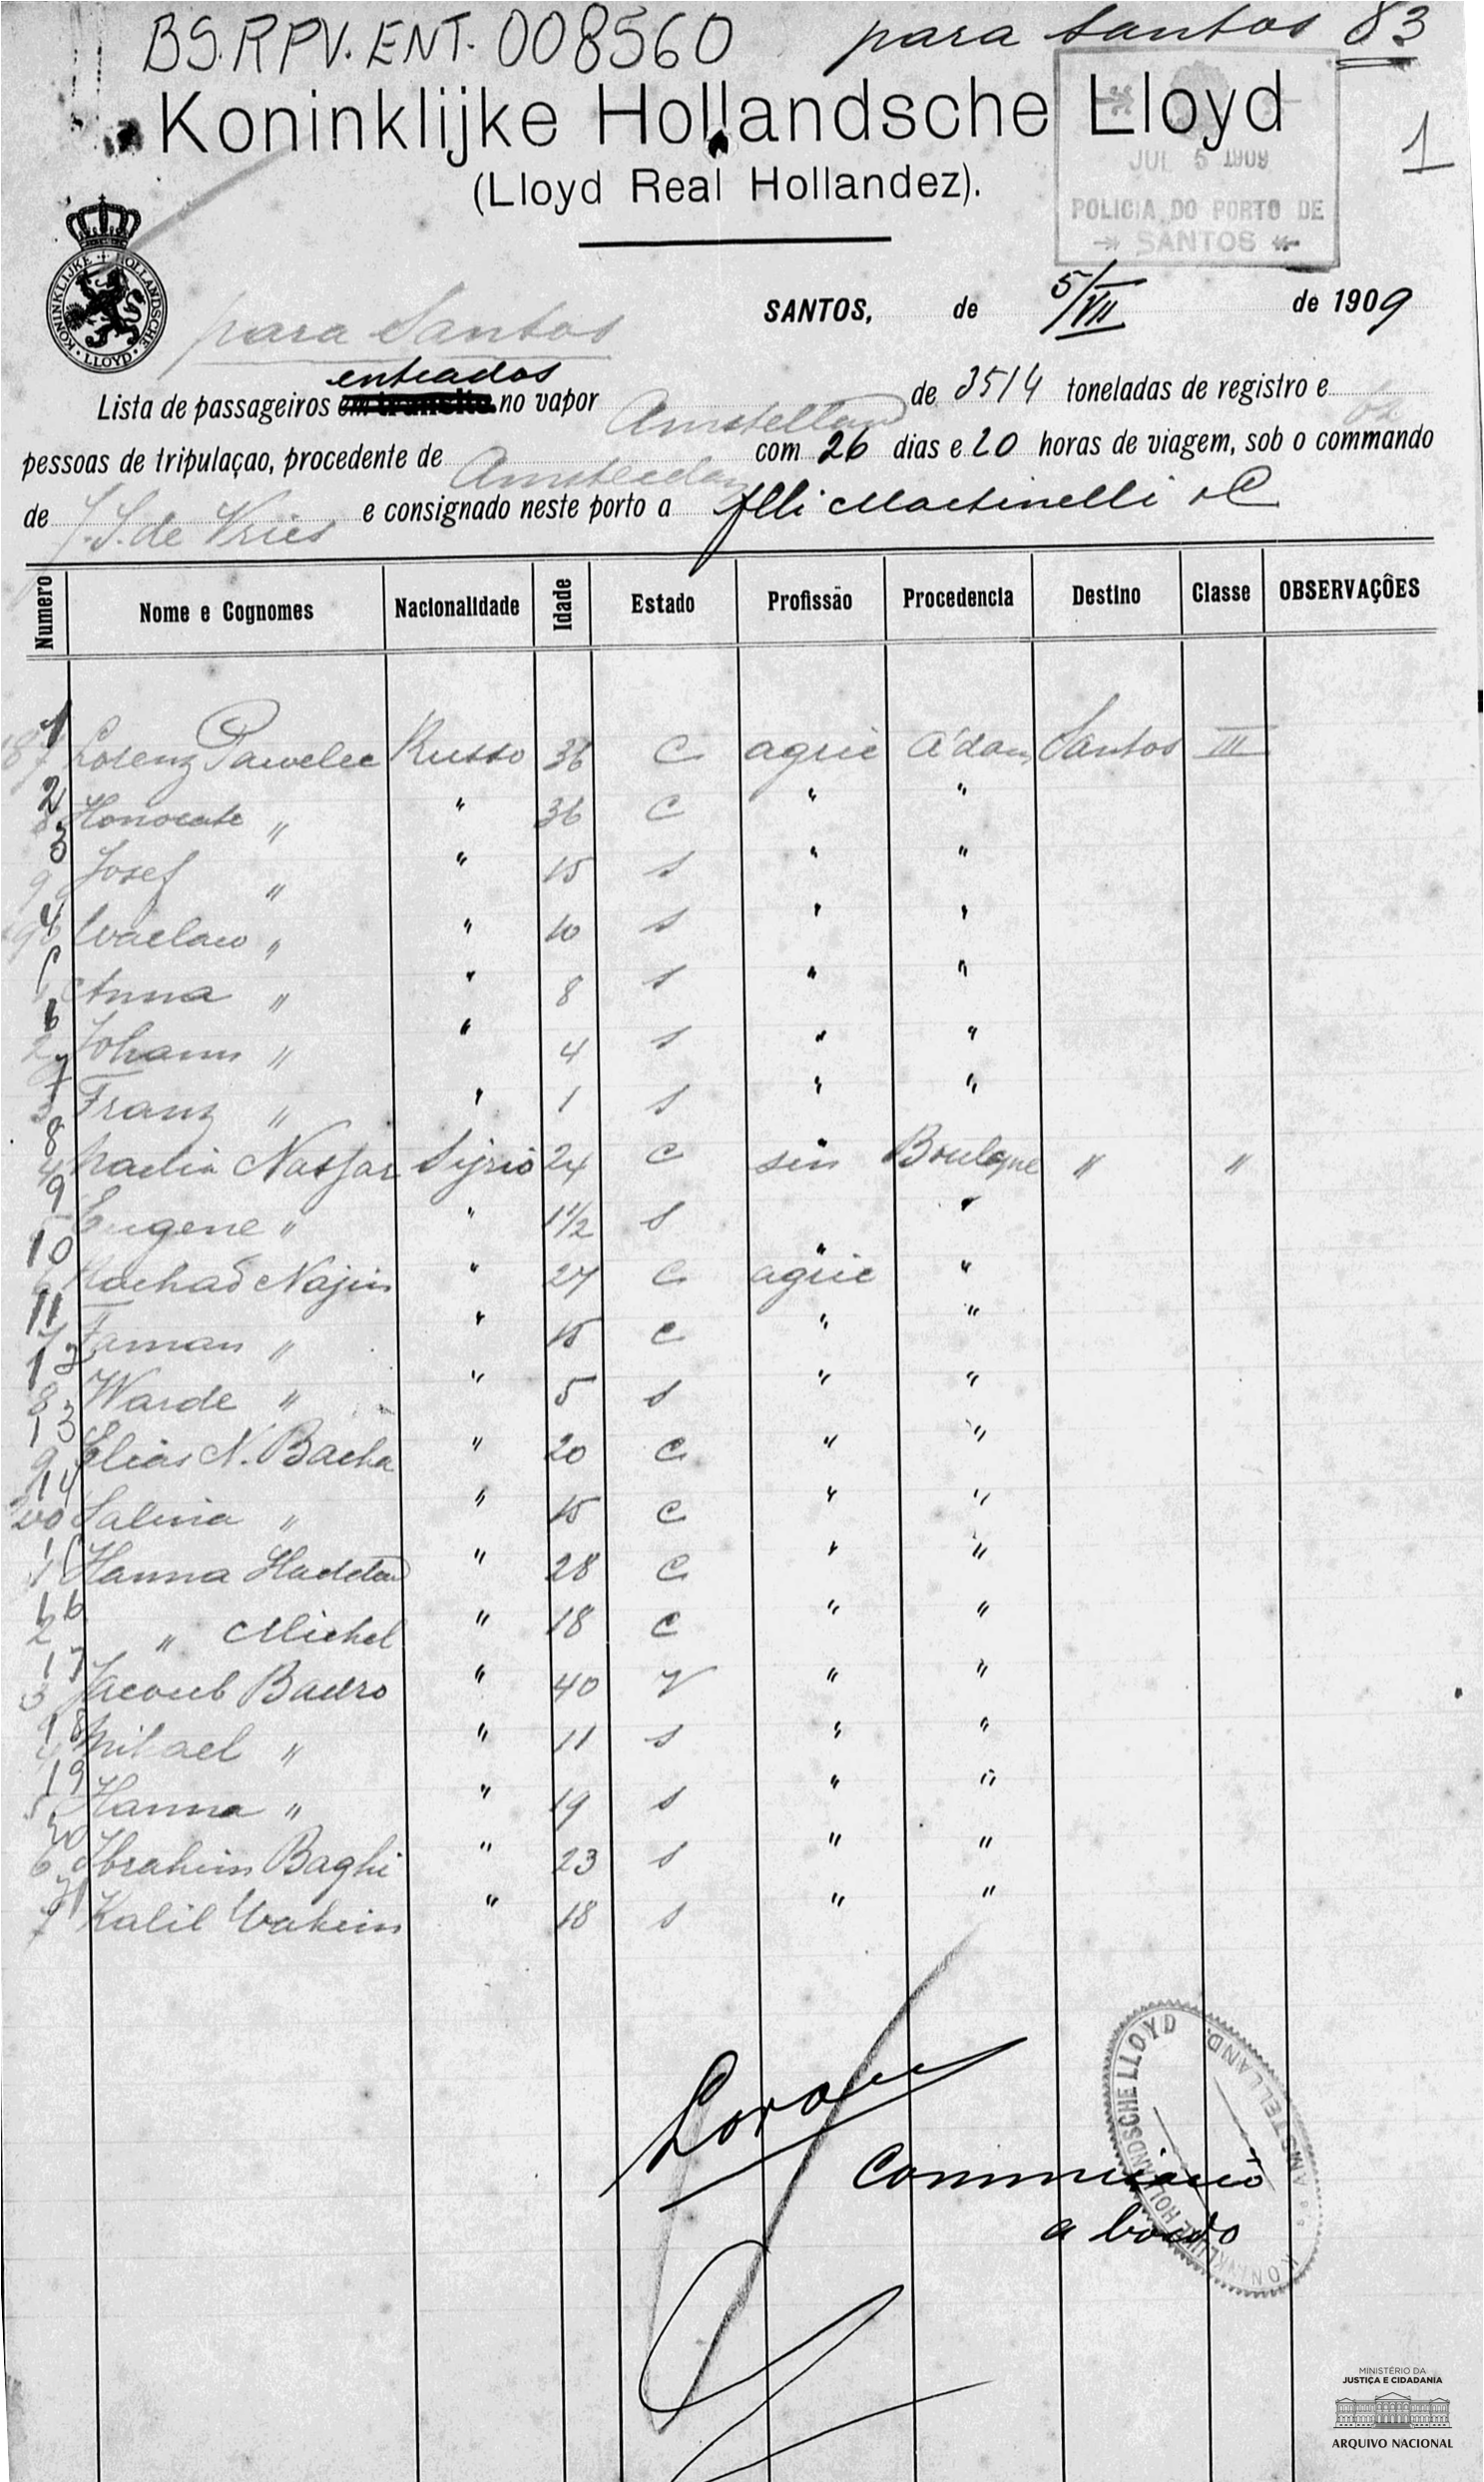 BS.RPV.ENT. 008560 para Santos 83
Koninklijke Hollandsche Lloyd
1
(Lloyd Real Hollandez).
JUL 5 1909
POLICIA DO PORTO DE
SANTOS
KONINKLIJKE HOLLANDSCHE LLOYD
SANTOS, de 5/VII de 1909
para Santos
entrados
Lista de passageiros em transito no vapor Amstelland de 3514 toneladas de registro e
pessoas de tripulaçao, procedente de Amsterdam com 26 dias e 20 horas de viagem, sob o commando
de J. S. de Vries e consignado neste porto a Flli Martinelli & C
Numero Nome e Cognomes Nacionalidade Idade Estado Profissão Procedencia Destino Classe OBSERVAÇÕES
1 187 Lorenz Pawelec Russo 36 C agric A'dam Santos III
2 8 Honorate " " 36 C " "
3 9 Josef " " 15 s " "
4 190 Waclaw " " 10 s " "
5 1 Anna " " 8 s " "
6 2 Johann " " 4 s " "
7 3 Franz " " 1 s " "
8 4 Maria Nassar Sijrio 24 C sin Boulogne " "
9 5 Eugene " " 1 1/2 s "
10 6 Rachad Najm " 27 C agric "
11 7 Faman " " 15 C " "
12 8 Warde " " 5 s " "
13 9 Elias N. Bacha " 20 C " "
14 200 Salina " " 15 C " "
15 1 Hanna Haddad " 28 C " "
16 2 " Michel " 18 C " "
17 3 Jacoub Badro " 40 V " "
18 4 Mikael " " 11 s " "
19 5 Hanna " " 19 s " "
20 6 Ibrahim Baghi " 23 s " "
21 7 Kalil Wakim " 18 s " "
Commissario
a bordo
KONINKLIJKE HOLLANDSCHE LLOYD
AMSTELLAND.
MINISTÉRIO DA
JUSTIÇA E CIDADANIA
ARQUIVO NACIONAL